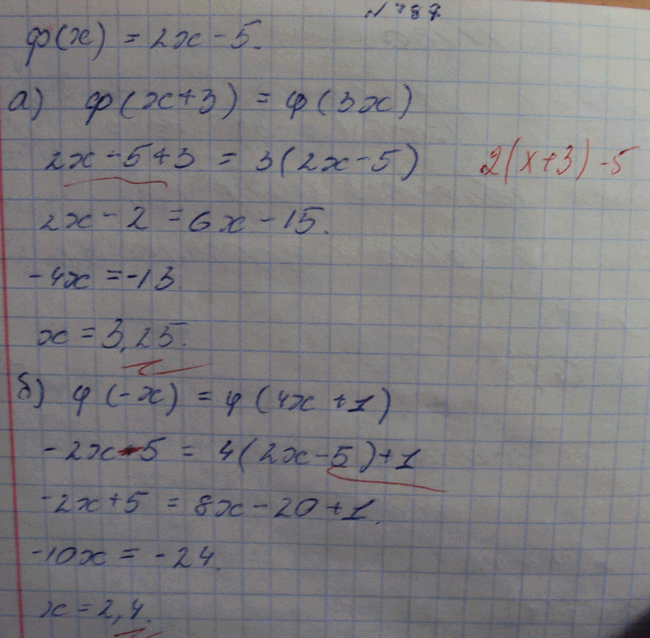 N 787
φ(x) = 2x - 5.
а) φ(x+3) = φ(3x)
2x - 5 + 3 = 3(2x - 5) 2(x+3) - 5
2x - 2 = 6x - 15.
-4x = -13
x = 3,25.
б) φ(-x) = φ(4x + 1)
-2x - 5 = 4(2x - 5) + 1
-2x + 5 = 8x - 20 + 1.
-10x = -24.
x = 2,4.